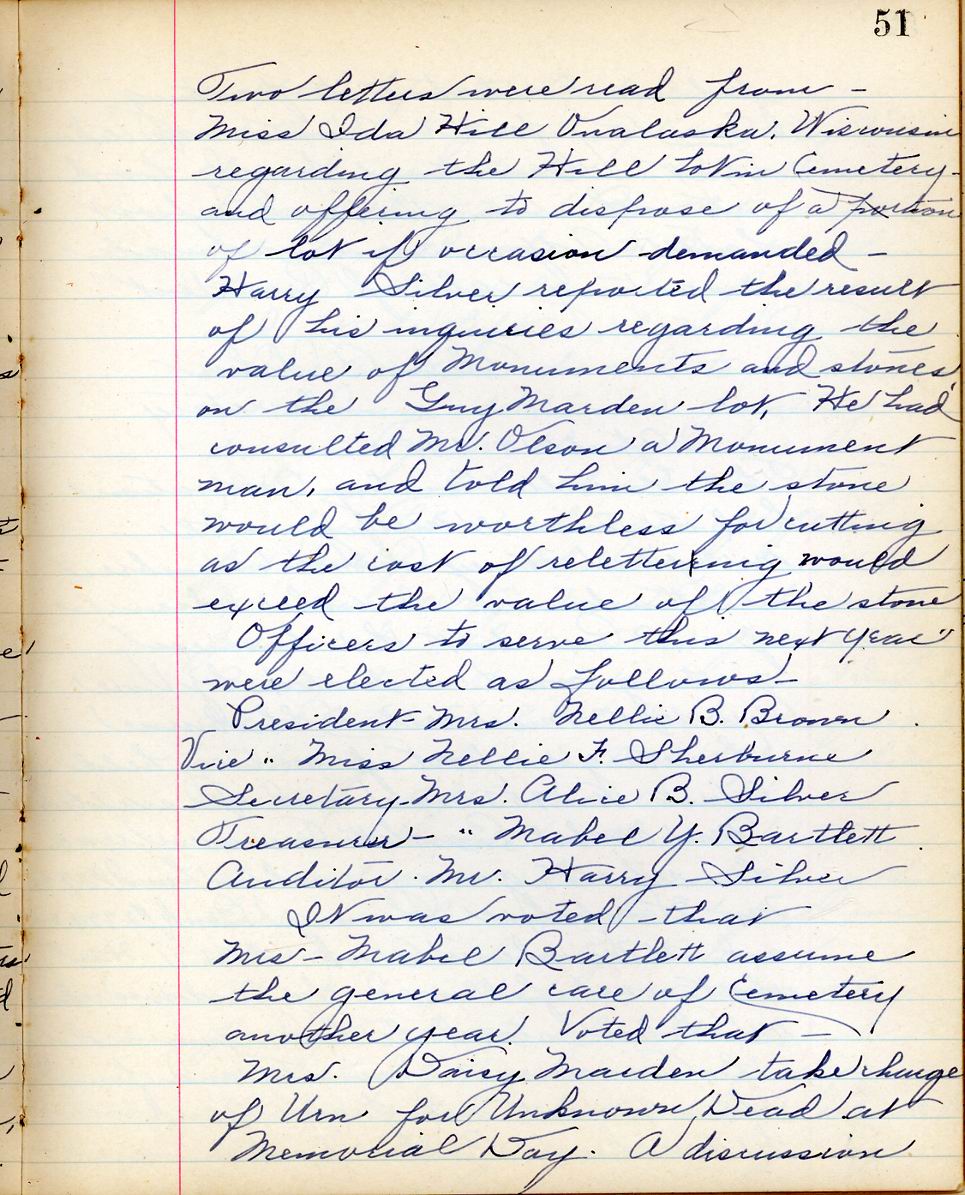 51
Two letters were read from -
Miss Ida Hill Onalaska, Wisconsin
regarding the Hill lot in Cemetery -
and offering to dispose of a portion
of lot if occasion demanded -
Harry Silver reported the result
of his inquiries regarding the
value of Monuments and stones
on the Guy Marden lot, He had
consulted Mr. Olson a Monument
man, and told him the stone
would be worthless for cutting
as the cost of relettering would
exceed the value of the stone
Officers to serve this next year
were elected as follows -
President - Mrs. Nellie B. Brown
Vice " Miss Nellie F. Sherburne
Secretary - Mrs. Alice B. Silver
Treasurer - " Mabel Y. Bartlett
Auditor. Mr. Harry Silver
It was voted that
Mrs - Mabel Bartlett assume
the general care of Cemetery
another year. Voted that -
Mrs. Daisy Marden take charge
of Urn for Unknown Dead at
Memorial Day. A discussion